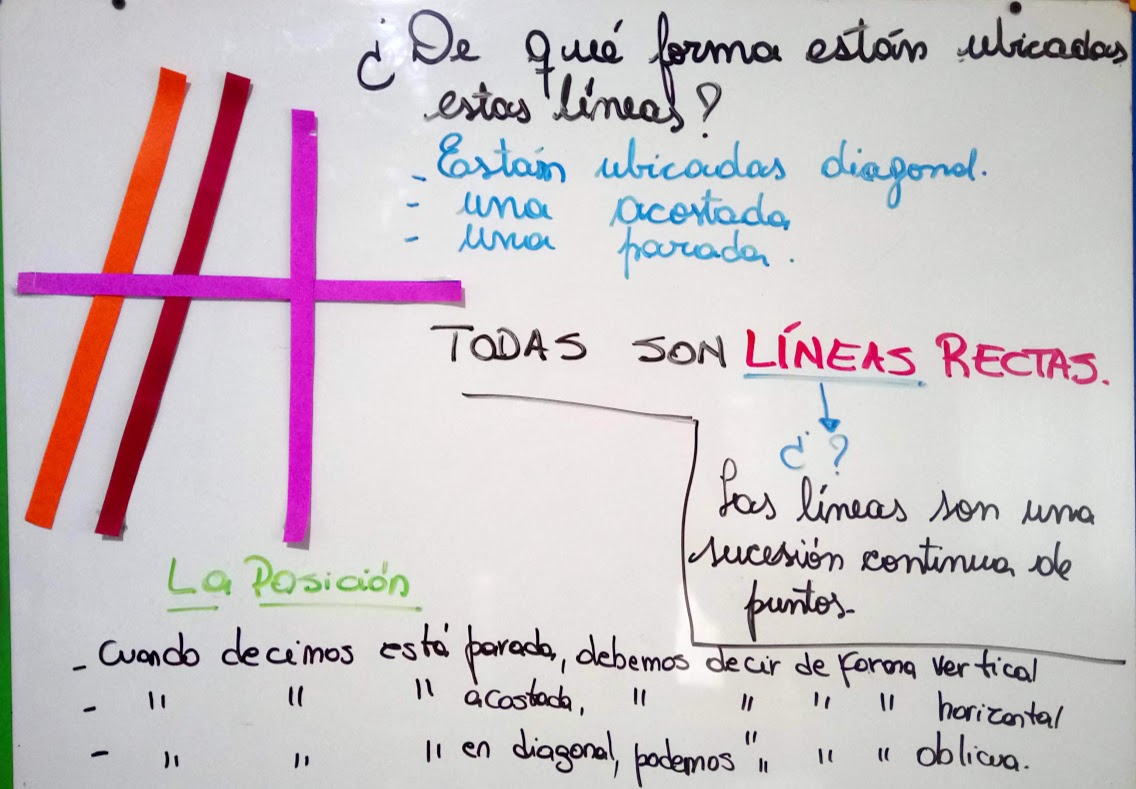 ¿De qué forma están ubicadas
estas líneas?
- Están ubicadas diagonal.
- una acostada
- una parada.
TODAS SON LÍNEAS RECTAS.
¿?
Las líneas son una
sucesión continua de
puntos.
La Posición
- Cuando decimos está parada, debemos decir de forma vertical
- " " " acostada, " " " " horizontal
- " " " en diagonal, podemos " " " " oblicua.